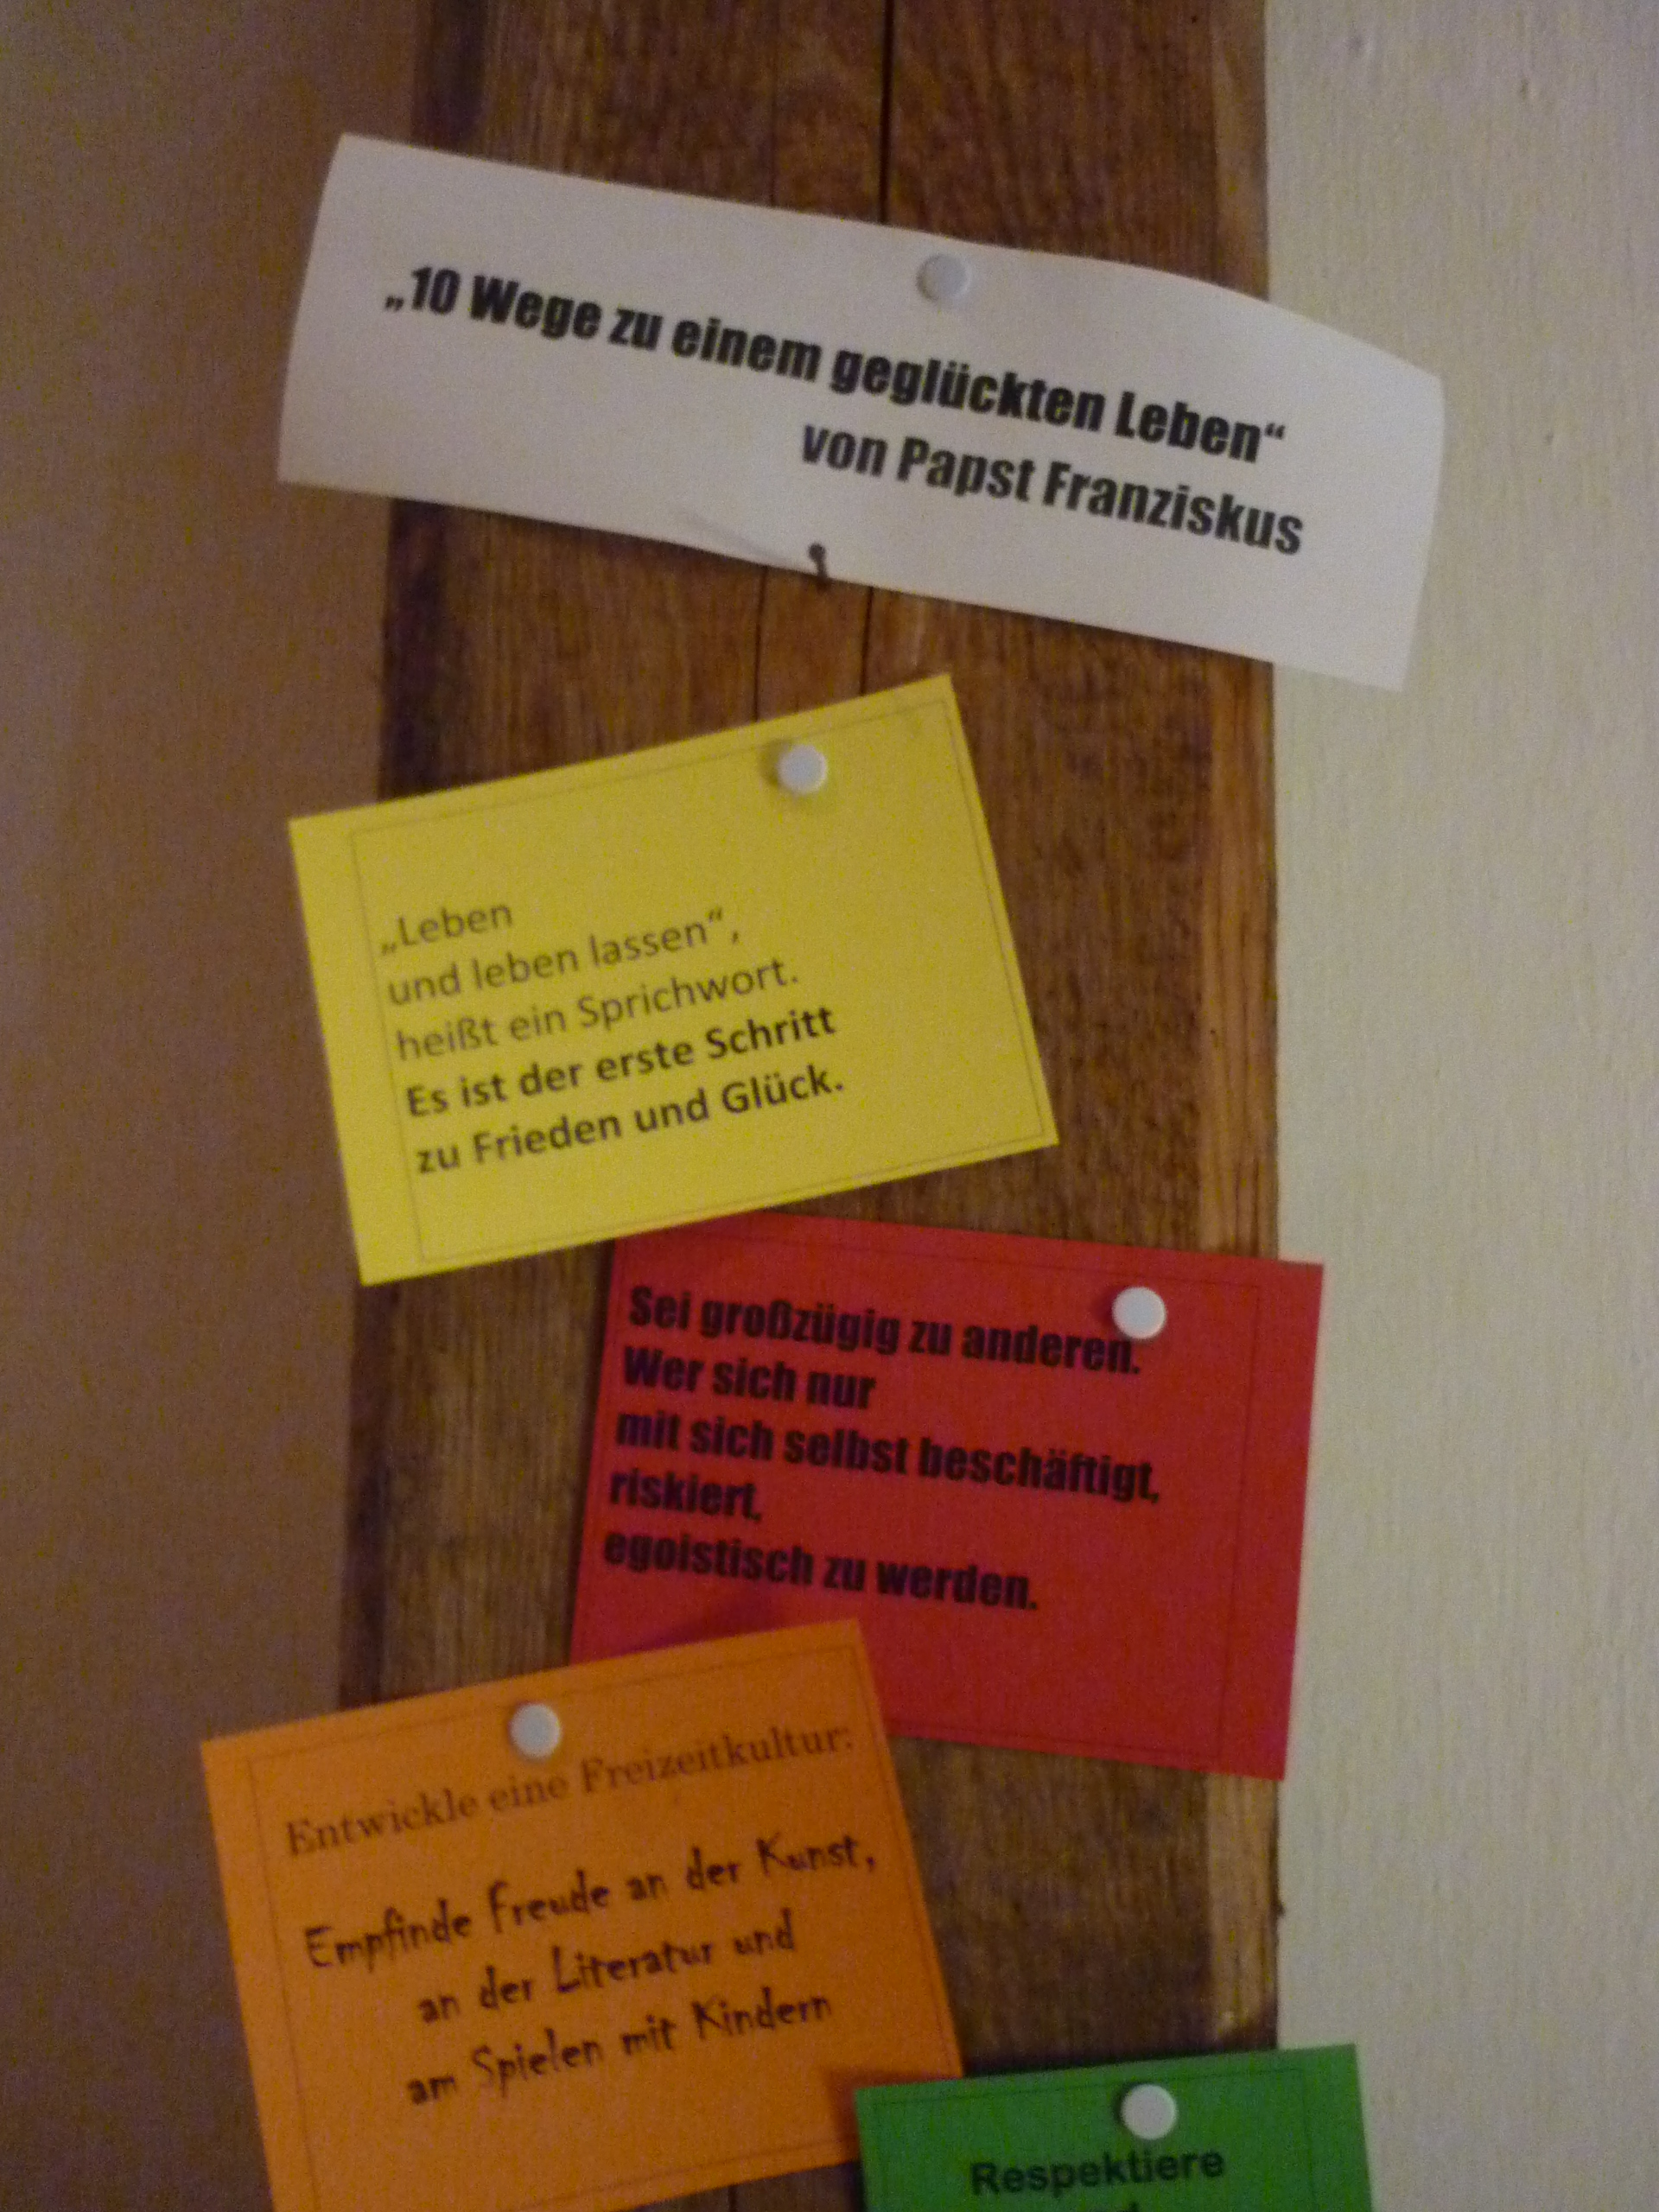 „10 Wege zu einem geglückten Leben“
von Papst Franziskus
„Leben
und leben lassen“,
heißt ein Sprichwort.
Es ist der erste Schritt
zu Frieden und Glück.
Sei großzügig zu anderen.
Wer sich nur
mit sich selbst beschäftigt,
riskiert,
egoistisch zu werden.
Entwickle eine Freizeitkultur:
Empfinde Freude an der Kunst,
an der Literatur und
am Spielen mit Kindern
Respektiere